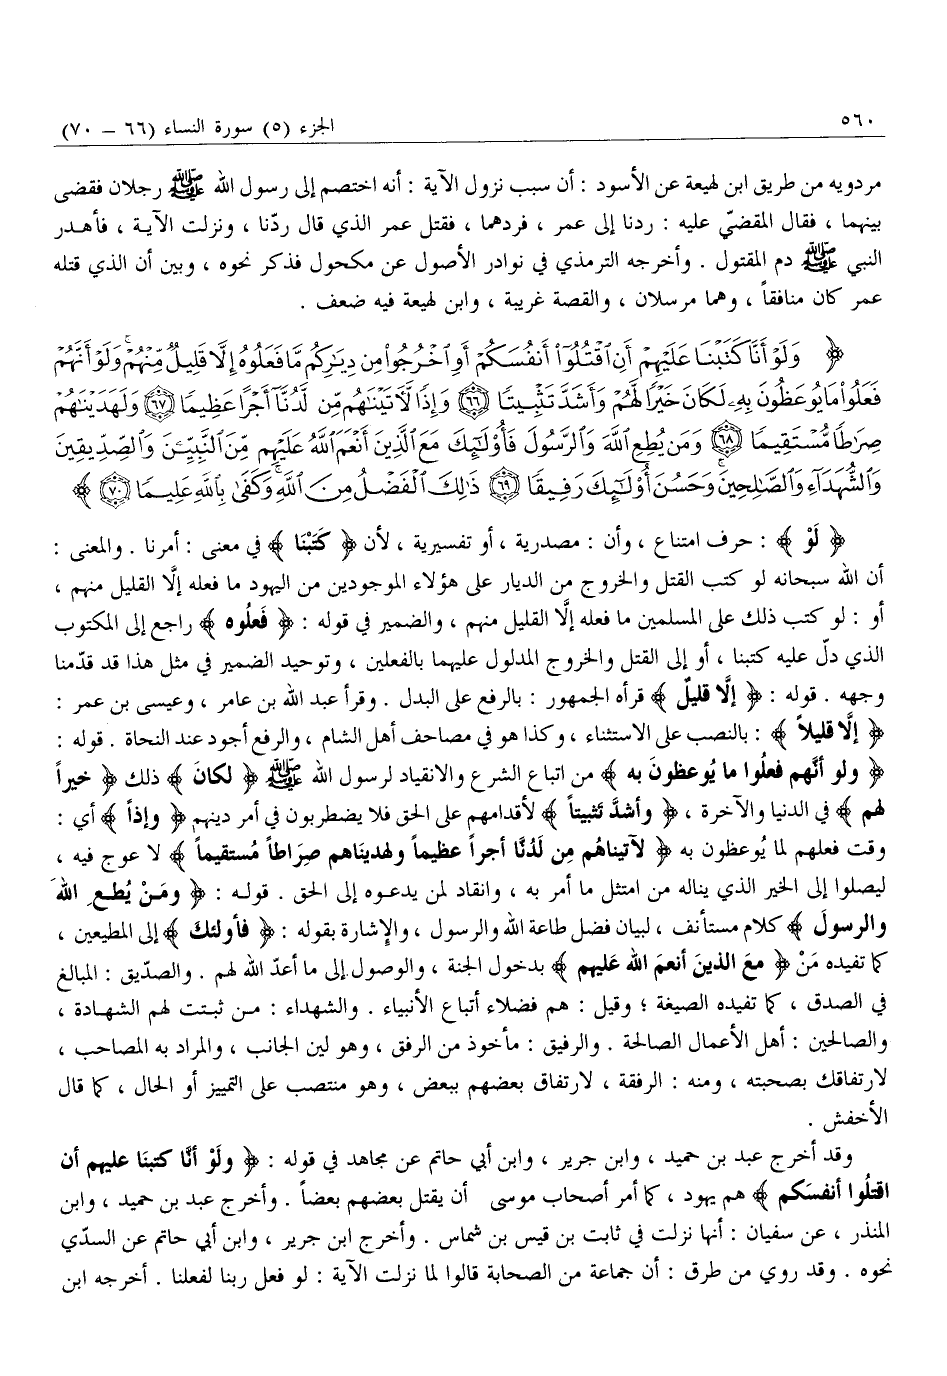 ٥٦٠
الجزء (٥) سورة النساء (٦٦ – ٧٠)
مردويه من طريق ابن لهيعة عن الأسود : أن سبب نزول الآية : أنه اختصم إلى رسول الله ﷺ رجلان فقضى
بينهما ، فقال المقضيّ عليه : ردنا إلى عمر ، فردهما ، فقتل عمر الذي قال ردّنا ، ونزلت الآية ، فأهدر
النبي ﷺ دم المقتول . وأخرجه الترمذي في نوادر الأصول عن مكحول فذكر نحوه ، وبين أن الذي قتله
عمر كان منافقاً ، وهما مرسلان ، والقصة غريبة ، وابن لهيعة فيه ضعف .
﴿ وَلَوْ أَنَّا كَتَبْنَا عَلَيْهِمْ أَنِ ٱقْتُلُوٓا۟ أَنفُسَكُمْ أَوِ ٱخْرُجُوا۟ مِن دِيَٰرِكُم مَّا فَعَلُوهُ إِلَّا قَلِيلٌ مِّنْهُمْ ۖ وَلَوْ أَنَّهُمْ
فَعَلُوا۟ مَا يُوعَظُونَ بِهِۦ لَكَانَ خَيْرًا لَّهُمْ وَأَشَدَّ تَثْبِيتًا ٦٦ وَإِذًا لَّءَاتَيْنَٰهُم مِّن لَّدُنَّآ أَجْرًا عَظِيمًا ٦٧ وَلَهَدَيْنَٰهُمْ
صِرَٰطًا مُّسْتَقِيمًا ٦٨ وَمَن يُطِعِ ٱللَّهَ وَٱلرَّسُولَ فَأُو۟لَٰٓئِكَ مَعَ ٱلَّذِينَ أَنْعَمَ ٱللَّهُ عَلَيْهِم مِّنَ ٱلنَّبِيِّـۧنَ وَٱلصِّدِّيقِينَ
وَٱلشُّهَدَآءِ وَٱلصَّٰلِحِينَ ۚ وَحَسُنَ أُو۟لَٰٓئِكَ رَفِيقًا ٦٩ ذَٰلِكَ ٱلْفَضْلُ مِنَ ٱللَّهِ ۚ وَكَفَىٰ بِٱللَّهِ عَلِيمًا ٧٠ ﴾
﴿ لَوْ ﴾ : حرف امتناع ، وأن : مصدرية ، أو تفسيرية ، لأن ﴿ كَتَبْنَا ﴾ في معنى : أمرنا . والمعنى :
أن الله سبحانه لو كتب القتل والخروج من الديار على هؤلاء الموجودين من اليهود ما فعله إلَّا القليل منهم ،
أو : لو كتب ذلك على المسلمين ما فعله إلَّا القليل منهم ، والضمير في قوله : ﴿ فَعلُوه ﴾ راجع إلى المكتوب
الذي دلّ عليه كتبنا ، أو إلى القتل والخروج المدلول عليهما بالفعلين ، وتوحيد الضمير في مثل هذا قد قدّمنا
وجهه . قوله : ﴿ إلَّا قليلٌ ﴾ قرأه الجمهور : بالرفع على البدل . وقرأ عبد الله بن عامر ، وعيسى بن عمر :
﴿ إلَّا قليلاً ﴾ : بالنصب على الاستثناء ، وكذا هو في مصاحف أهل الشام ، والرفع أجود عند النحاة . قوله :
﴿ ولو أنَّهم فعلُوا ما يُوعظونَ به ﴾ من اتباع الشرع والانقياد لرسول الله ﷺ ﴿ لكانَ ﴾ ذلك ﴿ خيراً
لهم ﴾ في الدنيا والآخرة ، ﴿ وأشدَّ تثبيتاً ﴾ لأقدامهم على الحق فلا يضطربون في أمر دينهم ﴿ وإذاً ﴾ أي :
وقت فعلهم لما يُوعظون به ﴿ لآتيناهُم مِن لَدُنَّا أجراً عظيماً ولهديناهم صِرَاطاً مُستقيماً ﴾ لا عوج فيه ،
ليصلوا إلى الخير الذي يناله من امتثل ما أمر به ، وانقاد لمن يدعوه إلى الحق . قوله : ﴿ ومَنْ يُطع ِ اللهَ
والرسولَ ﴾ كلام مستأنف ، لبيان فضل طاعة الله والرسول ، والإشارة بقوله : ﴿ فأولئكَ ﴾ إلى المطيعين ،
كما تفيده مَنْ ﴿ معَ الذينَ أنعمَ الله عَليهم ﴾ بدخول الجنة ، والوصول إلى ما أعدّ الله لهم . والصدّيق : المبالغ
في الصدق ، كما تفيده الصيغة ؛ وقيل : هم فضلاء أتباع الأنبياء . والشهداء : من ثبتت لهم الشهادة ،
والصالحين : أهل الأعمال الصالحة . والرفيق : مأخوذ من الرفق ، وهو لين الجانب ، والمراد به المصاحب ،
لارتفاقك بصحبته ، ومنه : الرفقة ، لارتفاق بعضهم ببعض ، وهو منتصب على التمييز أو الحال ، كما قال
الأخفش .
وقد أخرج عبد بن حميد ، وابن جرير ، وابن أبي حاتم عن مجاهد في قوله : ﴿ ولَوْ أنَّا كتبنَا عليهم أن
اقتلُوا أنفسَكم ﴾ هم يهود ، كما أمر أصحاب موسى أن يقتل بعضهم بعضاً . وأخرج عبد بن حميد ، وابن
المنذر ، عن سفيان : أنها نزلت في ثابت بن قيس بن شماس . وأخرج ابن جرير ، وابن أبي حاتم عن السدّي
نحوه . وقد روي من طرق : أن جماعة من الصحابة قالوا لما نزلت الآية : لو فعل ربنا لفعلنا . أخرجه ابن